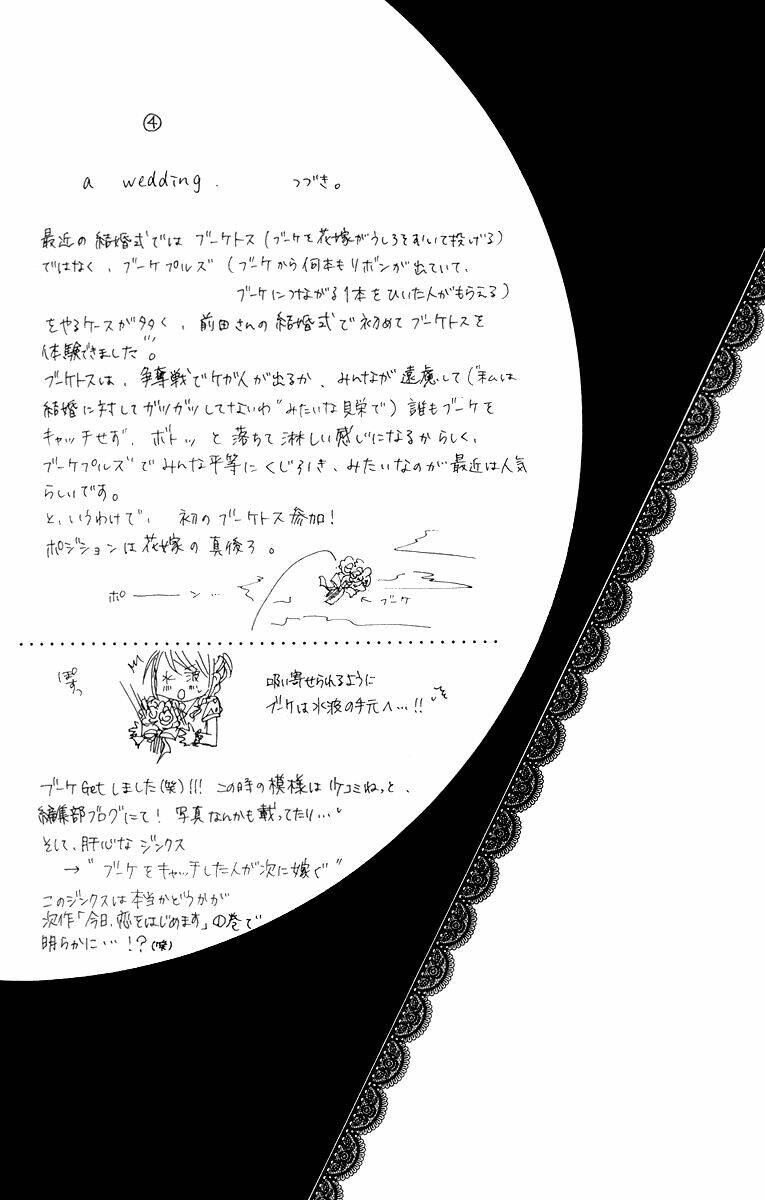 ④
a wedding. つづき。
最近の結婚式ではブーケトス(ブーケを花嫁がうしろをむいて投げる)
ではなく、ブーケプルズ(ブーケから何本もリボンが出ていて、
ブーケにつながる1本をひいた人がもらえる)
をやるケースが多く、前田さんの結婚式で初めてブーケトスを
体験できました。
ブーケトスは、争奪戦でケガ人が出るか、みんなが遠慮して("私は
結婚に対してガツガツしてないわ"みたいな見栄で)誰もブーケを
キャッチせず、ボトッと落ちて淋しい感じになるからしく、
ブーケプルズでみんな平等にくじ引き、みたいなのが最近は人気
らしいです。
と、いうわけで、初のブーケトス参加!
ポジションは花嫁の真後ろ。
ポーーン…
←ブーケ
ぽすっ
水波
吸い寄せられるように
ブーケは水波の手元へ…!!
ブーケGetしました(笑)!!! この時の模様はリケコミねっと、
編集部ブログにて! 写真なんかも載ってたり…
そして、肝心なジンクス
→"ブーケをキャッチした人が次に嫁ぐ"
このジンクスは本当かどうかが
次作「今日、恋をはじめます」の巻で
明らかに…!?(笑)